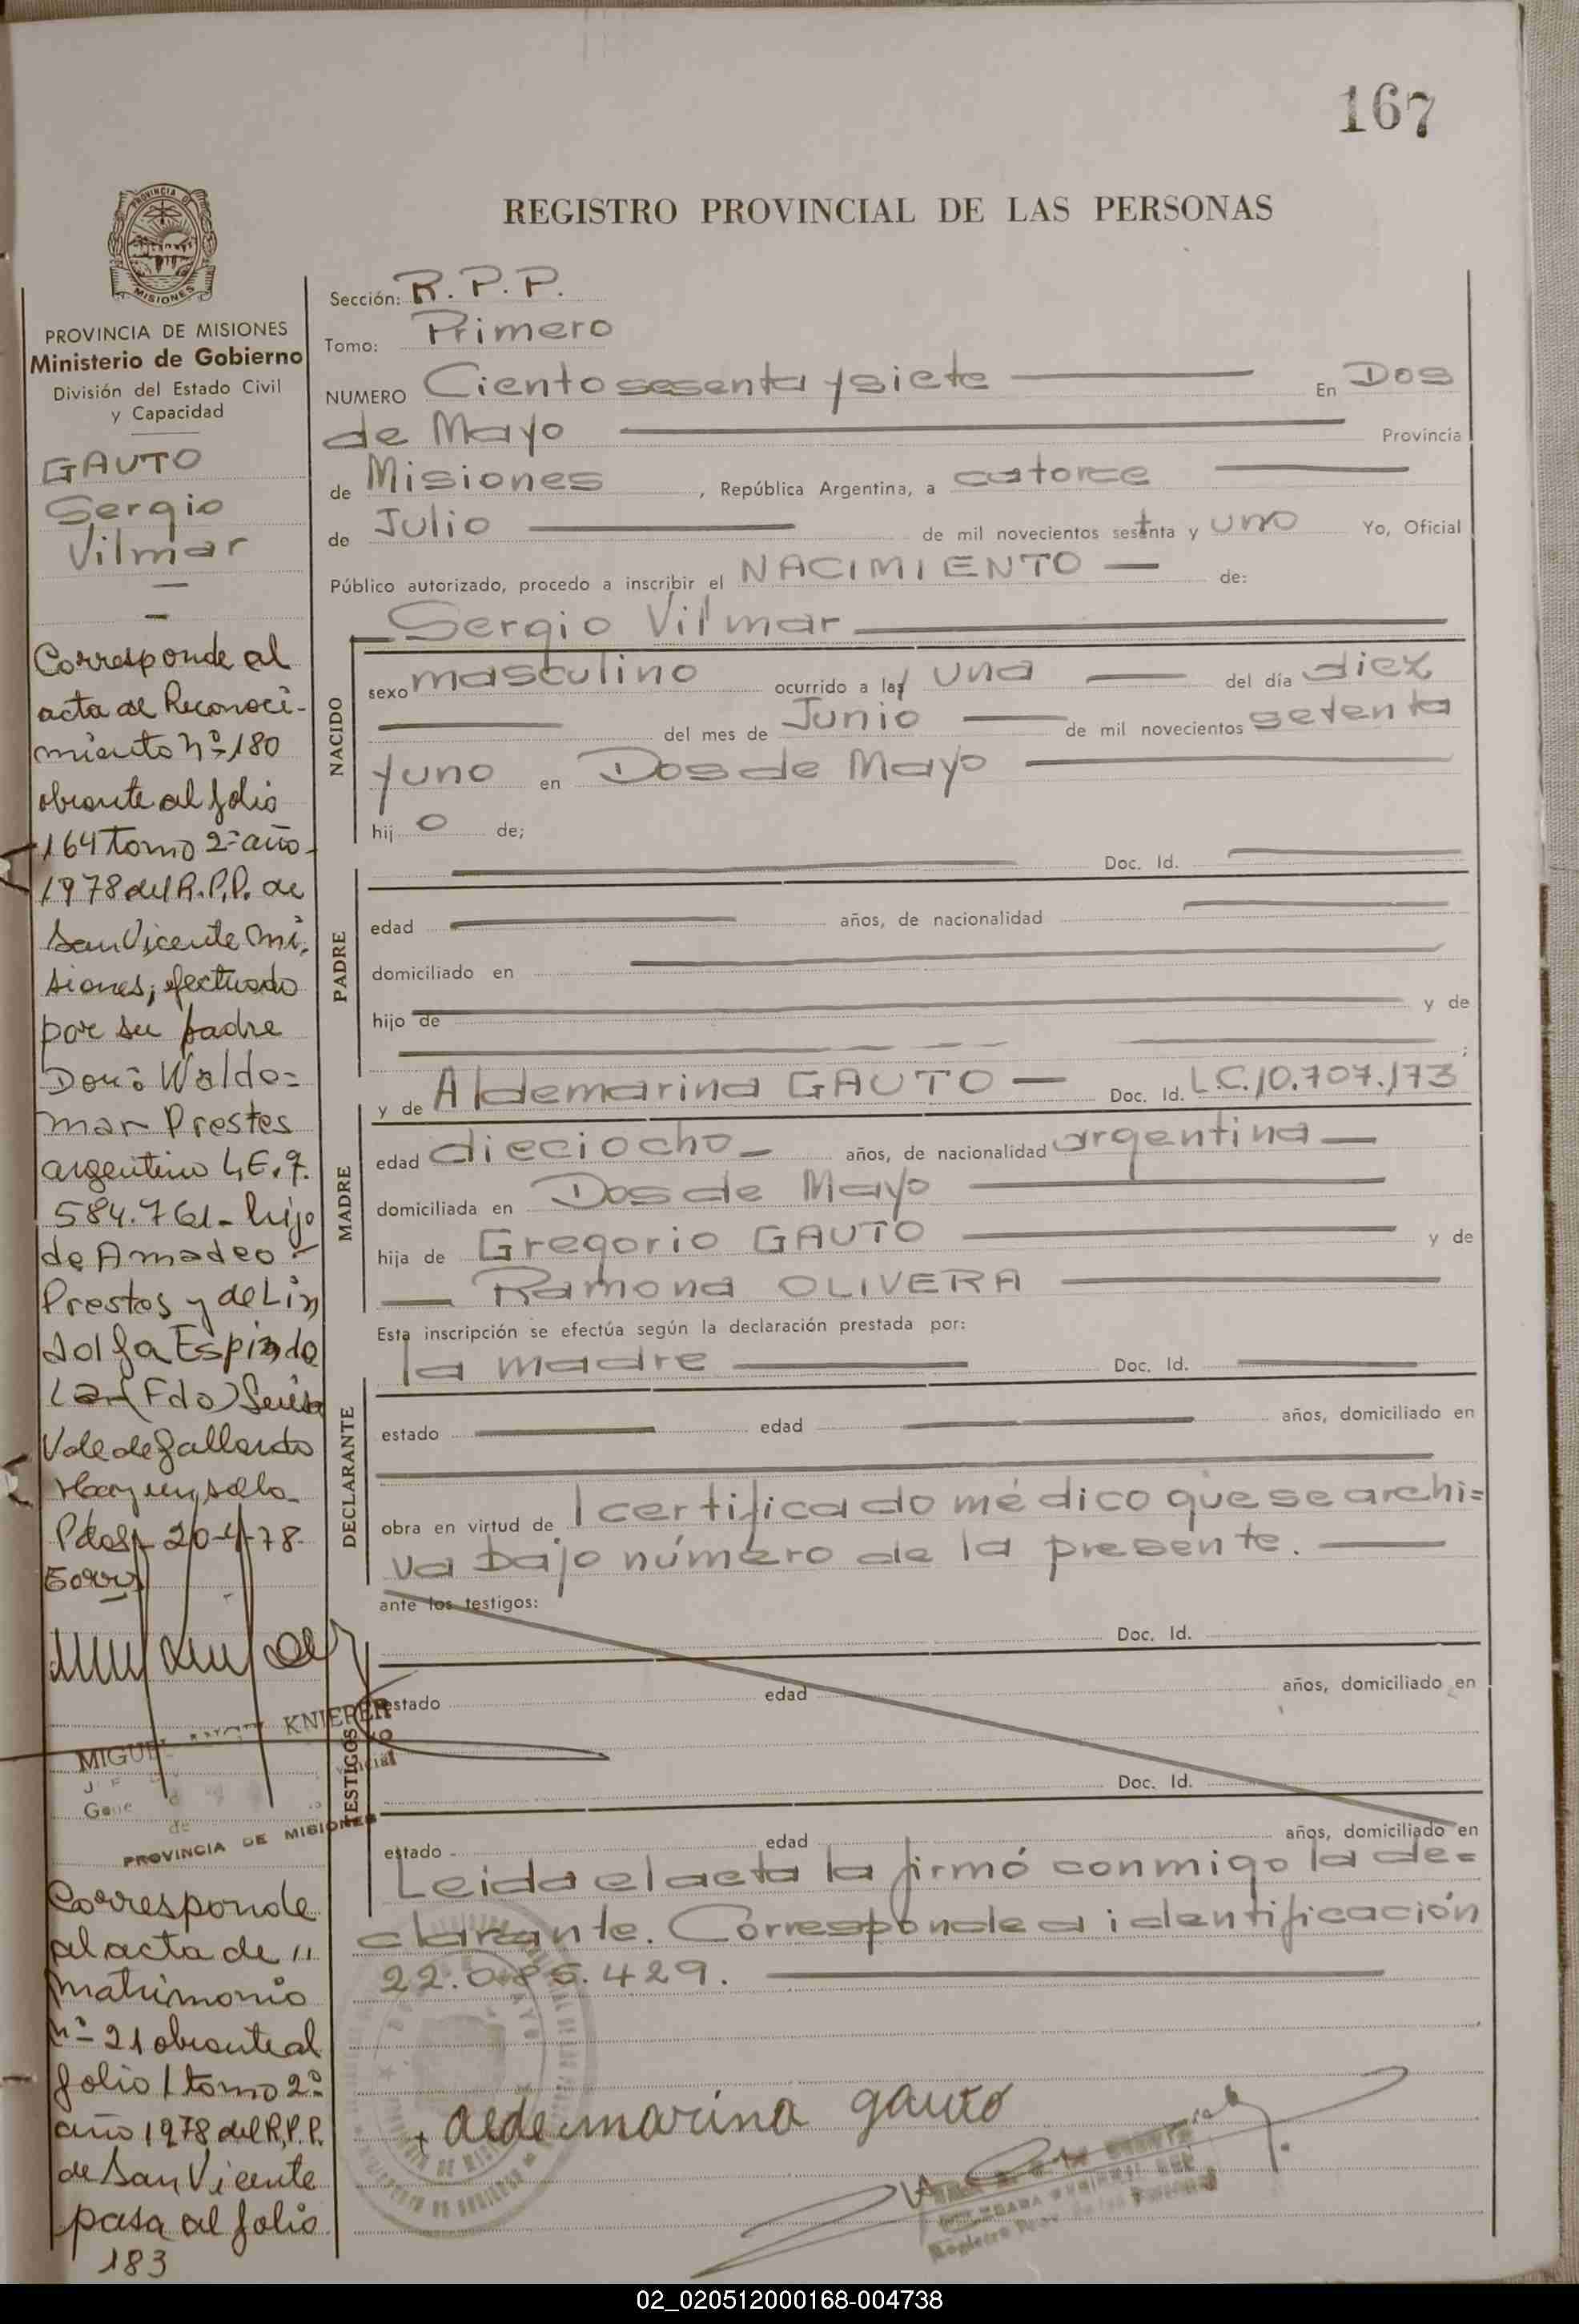 167
REGISTRO PROVINCIAL DE LAS PERSONAS
PROVINCIA DE
MISIONES
PROVINCIA DE MISIONES
Ministerio de Gobierno
División del Estado Civil
y Capacidad
GAUTO
Sergio
Vilmar
Corresponde al
acta de Reconoci-
miento nº 180
obrante al folio
164 tomo 2º año
1978 del R.P.P. de
San Vicente Mi-
siones, efectuado
por su padre
Don: Waldo=
mar Prestes
argentino L.E. 7.
584.761 - hijo
de Amadeo
Prestes y de Lin
dolfa Espindo
la (Fdo)
Vale de Gallardo
Hay un sello
Pdas 20-4-78
MIGUEL KNIERER
PROVINCIA DE MISIONES
Corresponde
al acta de "
matrimonio
nº 21 obrante al
folio 1 tomo 2º
año 1978 del R.P.P.
de San Vicente
pasa al folio
183
Sección: R. P. P.
Tomo: Primero
NUMERO Ciento sesenta y siete En Dos
de Mayo Provincia
de Misiones, República Argentina, a catorce
de Julio de mil novecientos setenta y uno Yo, Oficial
Público autorizado, procedo a inscribir el NACIMIENTO de:
Sergio Vilmar
NACIDO
sexo masculino ocurrido a la una del día diez
del mes de Junio de mil novecientos setenta
y uno en Dos de Mayo
hijo de;
PADRE
Doc. Id.
edad años, de nacionalidad
domiciliado en
hijo de y de
MADRE
y de Aldemarina GAUTO Doc. Id. L.C.10.707.173
edad dieciocho años, de nacionalidad argentina
domiciliada en Dos de Mayo
hija de Gregorio GAUTO y de
Ramona OLIVERA
Esta inscripción se efectúa según la declaración prestada por:
DECLARANTE
la madre Doc. Id.
estado edad años, domiciliado en
obra en virtud de l certificado médico que se archi=
va bajo número de la presente.
ante los testigos:
TESTIGOS
Doc. Id.
estado edad años, domiciliado en
Doc. Id.
estado edad años, domiciliado en
Leida el acta la firmó conmigo la de=
clarante. Corresponde a identificación
22.085.429.
aldemarina gauto
02_020512000168-004738